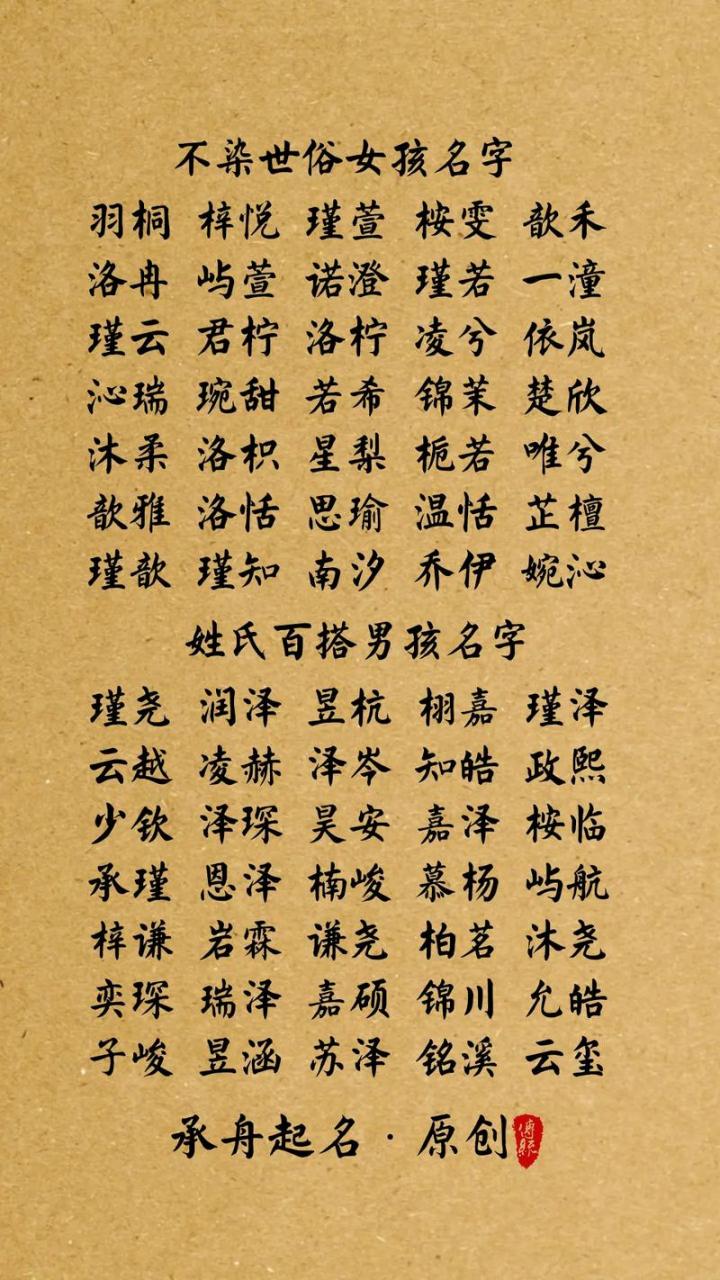 不染世俗女孩名字
羽桐 梓悦 瑾萱 桉雯 歆禾
洛冉 屿萱 诺澄 瑾若 一潼
瑾云 君柠 洛柠 凌兮 依岚
沁瑞 琬甜 若希 锦茉 楚欣
沐柔 洛枳 星梨 栀若 唯兮
歆雅 洛恬 思瑜 温恬 芷檀
瑾歆 瑾知 南汐 乔伊 婉沁
姓氏百搭男孩名字
瑾尧 润泽 昱杭 栩嘉 瑾泽
云越 凌赫 泽岑 知皓 政熙
少钦 泽琛 昊安 嘉泽 桉临
承瑾 恩泽 楠峻 慕杨 屿航
梓谦 岩霖 谦尧 柏茗 沐尧
奕琛 瑞泽 嘉硕 锦川 允皓
子峻 昱涵 苏泽 铭溪 云玺
承舟起名·原创